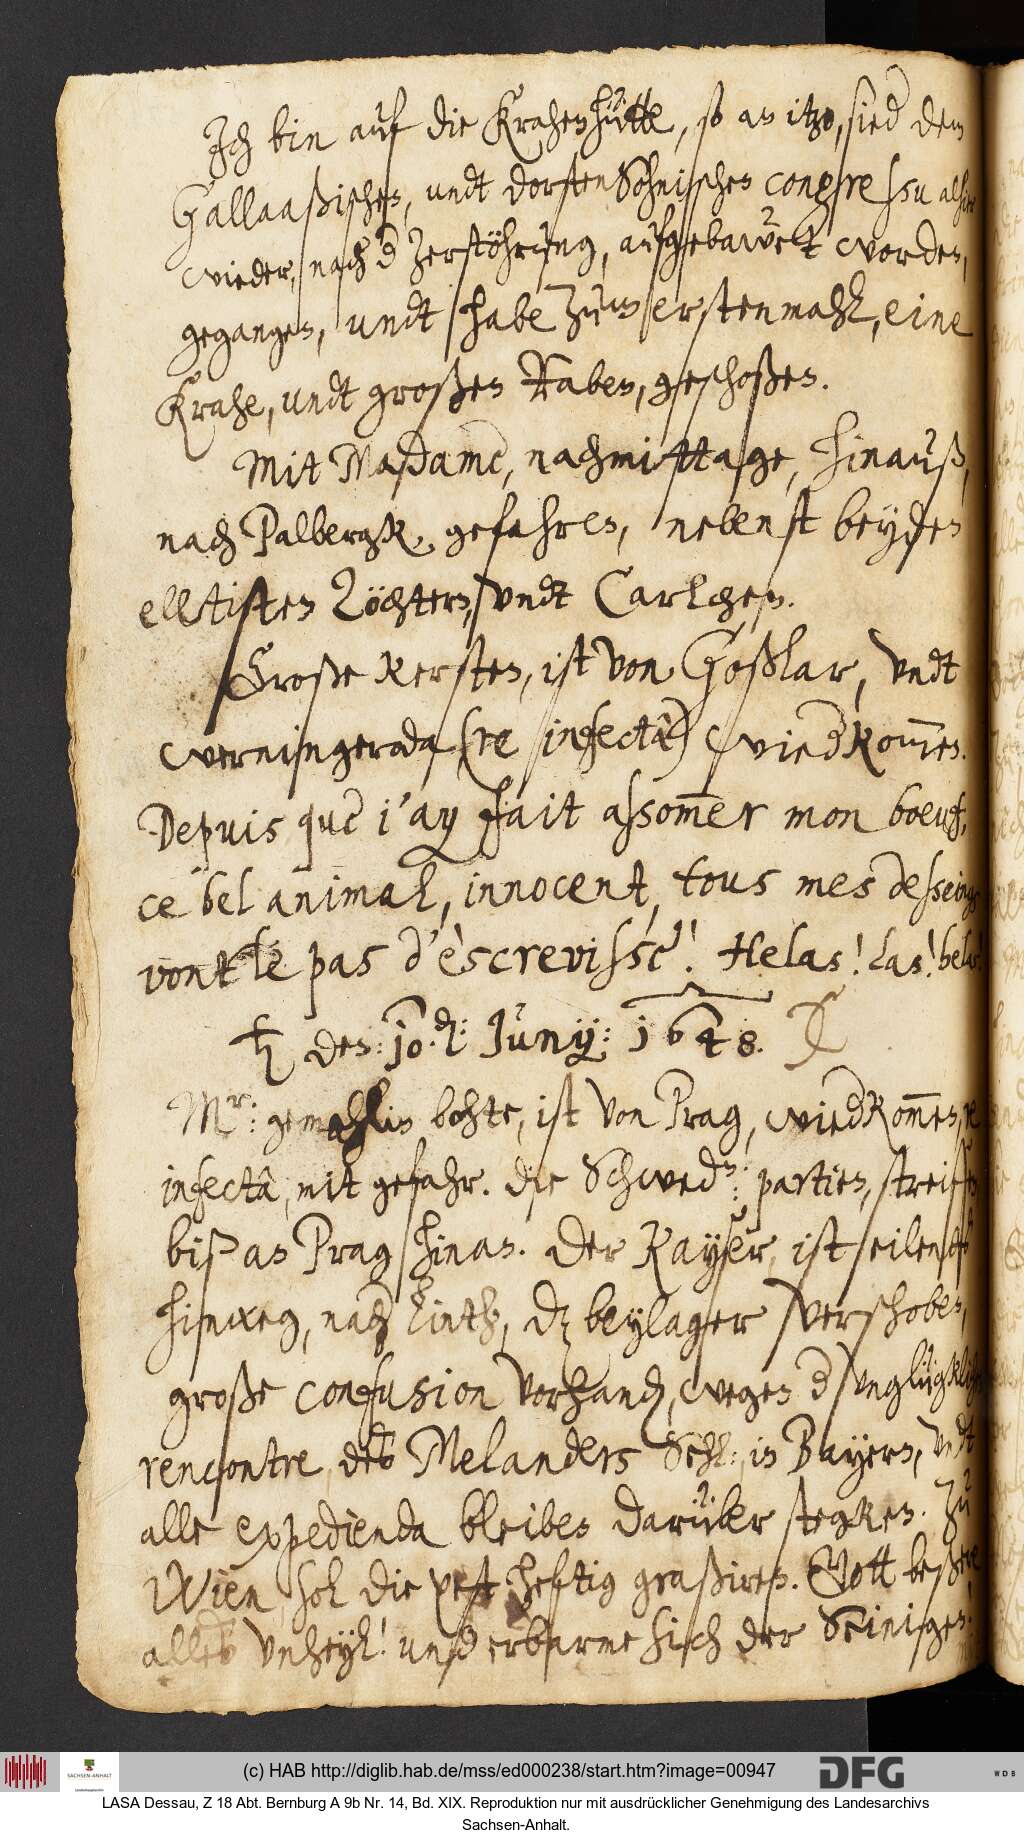 Ich bin auf die Krahenhütte, so an itzo, sied dem
Gallaaßischen, undt dorstensöhnischen congressu alhier
wieder, nach d zerstöhrung, aufgebawet worden,
gegangen, undt habe zum erstenmahl, eine
Krahe, undt großen Raben, geschoßen.
Mit Madame, nachmittage, hinauß,
nach Palbergk, gefahren, nebenst beyden
elltisten Töchtern, undt Carlchen.
Große Kersten, ist von Goßlar, undt
werningeroda (re infectâ) wiedkommen.
Depuis que j'ay fait assommer mon boeuf,
ce bel animal, innocent, tous mes desseings
vont le pas d'èscrevisse! Helas! las! helas!
♄ den: 10.d: Juny: 1648. ☾
Mr: gemahlin bohte, ist von Prag, wiedkommen, re
infectâ, mit gefahr. die Schwedn: partien, streiffen
biß an Prag hinan. Der Kayser, ist eilends
hinweg, nach Lintz, dz beylager verschoben,
große confusion vorhanden, wegen d unglügklichen
rencontre, deß Melanders Sehl: in Bayern, undt
alle expedienda bleiben darüber stegken. Zu
Wien, sol die pest heftig graßiren. Gott beßere
alles unheyl! und erbarme sich der Seinigen!
(c) HAB http://diglib.hab.de/mss/ed000238/start.htm?image=00947
SACHSEN-ANHALT
DFG
WDB
LASA Dessau, Z 18 Abt. Bernburg A 9b Nr. 14, Bd. XIX. Reproduktion nur mit ausdrücklicher Genehmigung des Landesarchivs
Sachsen-Anhalt.